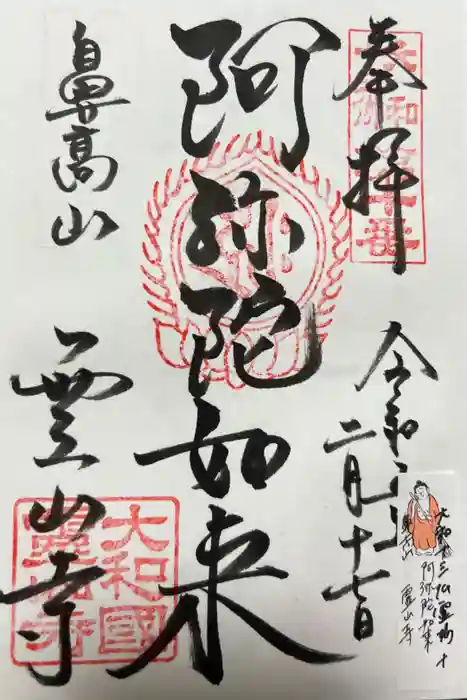 奉拝
令和
二月十七日
阿弥陀如来
鼻高山
霊山寺
大和國
霊山寺
大和十三仏霊場
阿弥陀如来
霊山寺